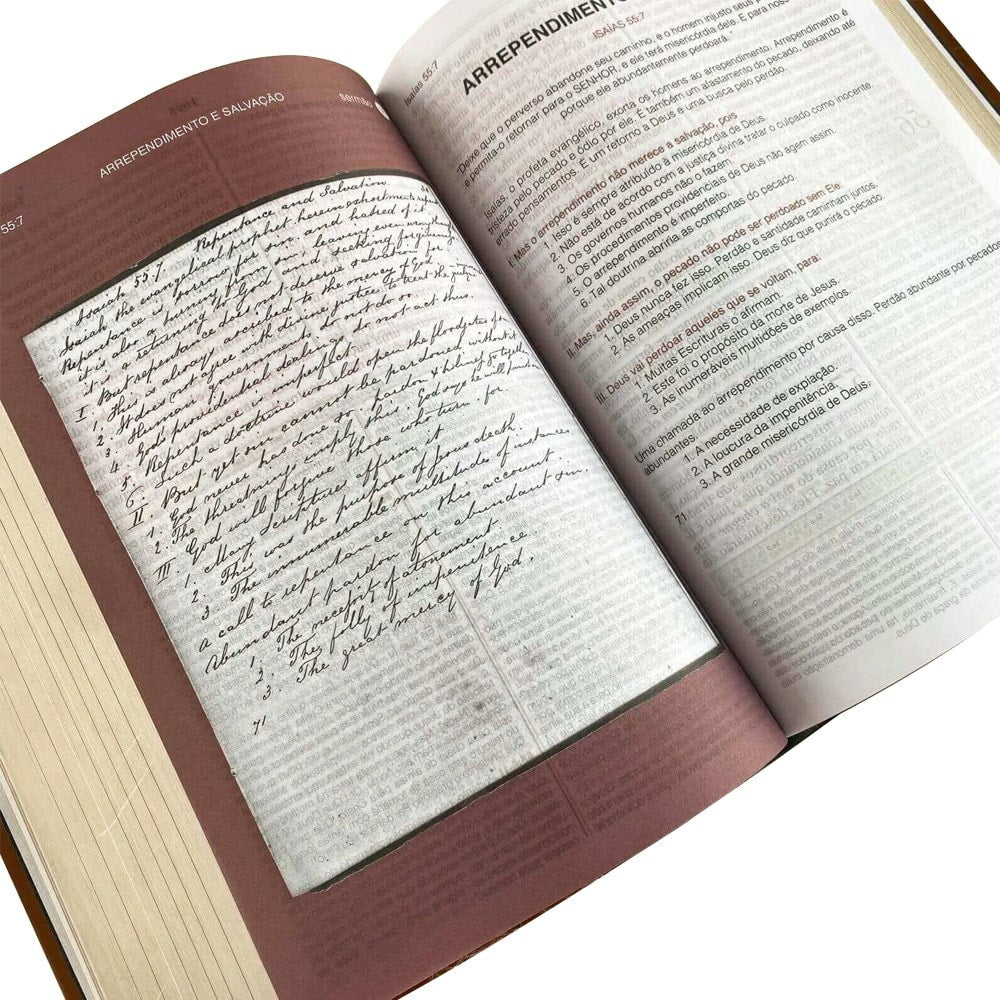 ARREPENDIMENTO E SALVAÇÃO
sermão
55:7
Repentance and Salvation.
Isaiah 55.7.
Isaiah the evangelical prophet herein exhort men to
Repentance is sorrow for sin, and hatred of it
it is also a turning from and leaving even
it is a returning to God and seeking forgiving
I. But repentance does not deserve salvation for
1. This is always ascribed to the mercy of God
2. It does not agree with divine justice to treat the guilty
3. Human governments do not do so.
4. God's providential dealings do not act thus.
5. Repentance is imperfect.
6. Such a doctrine would open the floodgates
II. But yet sin cannot be pardoned without it
1. God never has done so. pardon & go together
2. The threatenings imply this. God says he will
III God will forgive those who turn for
1. Many Scriptures affirm it
2. This was the purpose of Jesus death.
3. The innumerable multitude of instances
A call to repentance on this account.
Abundant pardon for abundant sin.
1. The necessity of atonement
2. The folly of impenitence.
3. The great mercy of God.
71
Isaías 55:7
ARREPENDIMENTO
ISAÍAS 55:7
"Deixe que o perverso abandone seu caminho, e o homem injusto seus
e permita-o retornar para o SENHOR, e ele terá misericórdia dele. E para nosso
porque ele abundantemente perdoará."
Isaías, o profeta evangélico, exorta os homens ao arrependimento. Arrependimento é
tristeza pelo pecado e ódio por ele. É também um afastamento do pecado, deixando até
errado pensamentos. É um retorno a Deus e uma busca pelo perdão.
I. Mas o arrependimento não merece a salvação, pois
1. Isso é sempre atribuído à misericórdia de Deus.
2. Não está de acordo com a justiça divina tratar o culpado como inocente.
3. Os governos humanos não o fazem.
4. Os procedimentos providenciais de Deus não agem assim.
5. O arrependimento é imperfeito.
6. Tal doutrina abriria as comportas do pecado.
II. Mas, ainda assim, o pecado não pode ser perdoado sem Ele.
1. Deus nunca fez isso. Perdão e santidade caminham juntos.
2. As ameaças implicam isso. Deus diz que punirá o pecado.
III. Deus vai perdoar àqueles que se voltam, para:
1. Muitas Escrituras o afirmam.
2. Este foi o propósito da morte de Jesus.
3. As inumeráveis multidões de exemplos.
Uma chamada ao arrependimento por causa disso. Perdão abundante por pecados
abundantes.
1. A necessidade de expiação.
2. A loucura da impenitência.
3. A grande misericórdia de Deus.
71